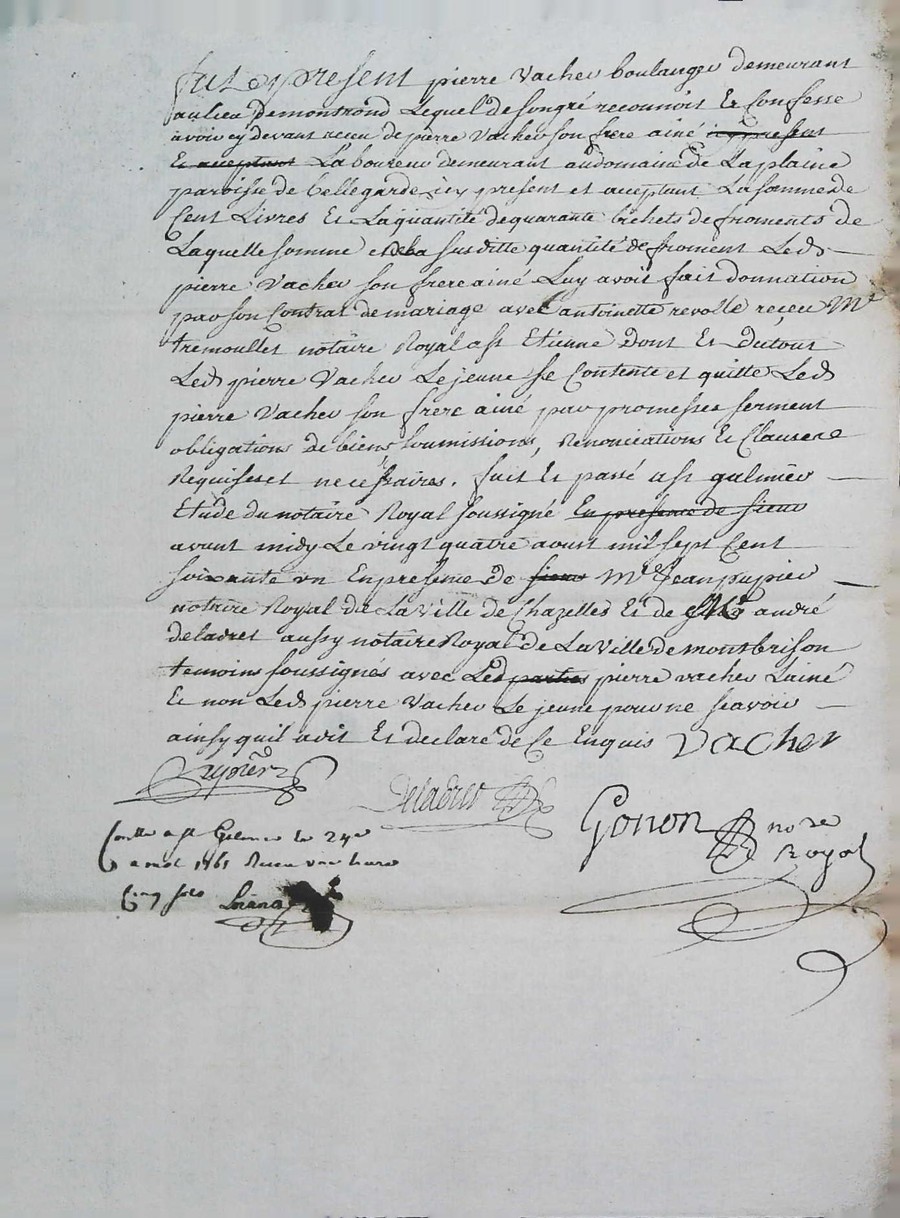 fut et present pierre Vacher boulanger demeurant
au lieu de montrond Lequel de son gré reconnoit Et Confesse
avoir cy devant receu de pierre Vacher son frere ainé icy present
Et aceptant Laboureur demeurant au domaine de Laplaine
paroisse de bellegarde icy present et aceptant La somme de
Cent Livres Et La quantité de quarante bichets de froments de
Laquelle somme et de la susditte quantité de froment Led
pierre Vacher son frere ainé Luy avoit fait donnation
par son Contrat de mariage avec antoinette revolle receu Me
tremoullet notaire Royal a st Etienne Dont Et du tout
Led pierre Vacher Le jeune se Contente et quitte Led
pierre Vacher son frere ainé par promesses serment
obligations de biens soumissions, Renonciations Et Clauses
Requises et necessaires. fait Et passé a st galmier
Etude du notaire Royal soussigné En presence de sieur
avant midy Le vingt quatre aoust mil sept Cent
soixante un En presence de sieur Me Jean pupier
notaire Royal de La Ville de Chazelles Et de Me andré
deladret aussy notaire Royal de La Ville de montbrison
temoins soussignés avec Led parties pierre vacher Lainé
Et non Led pierre Vacher Le jeune pour ne scavoir
ainsy quil a dit Et declare de Ce Enquis Vacher
Deladret
Gonon nore
Royal
st Galmier le 24e
aout 1761 Receu
Cinq sols